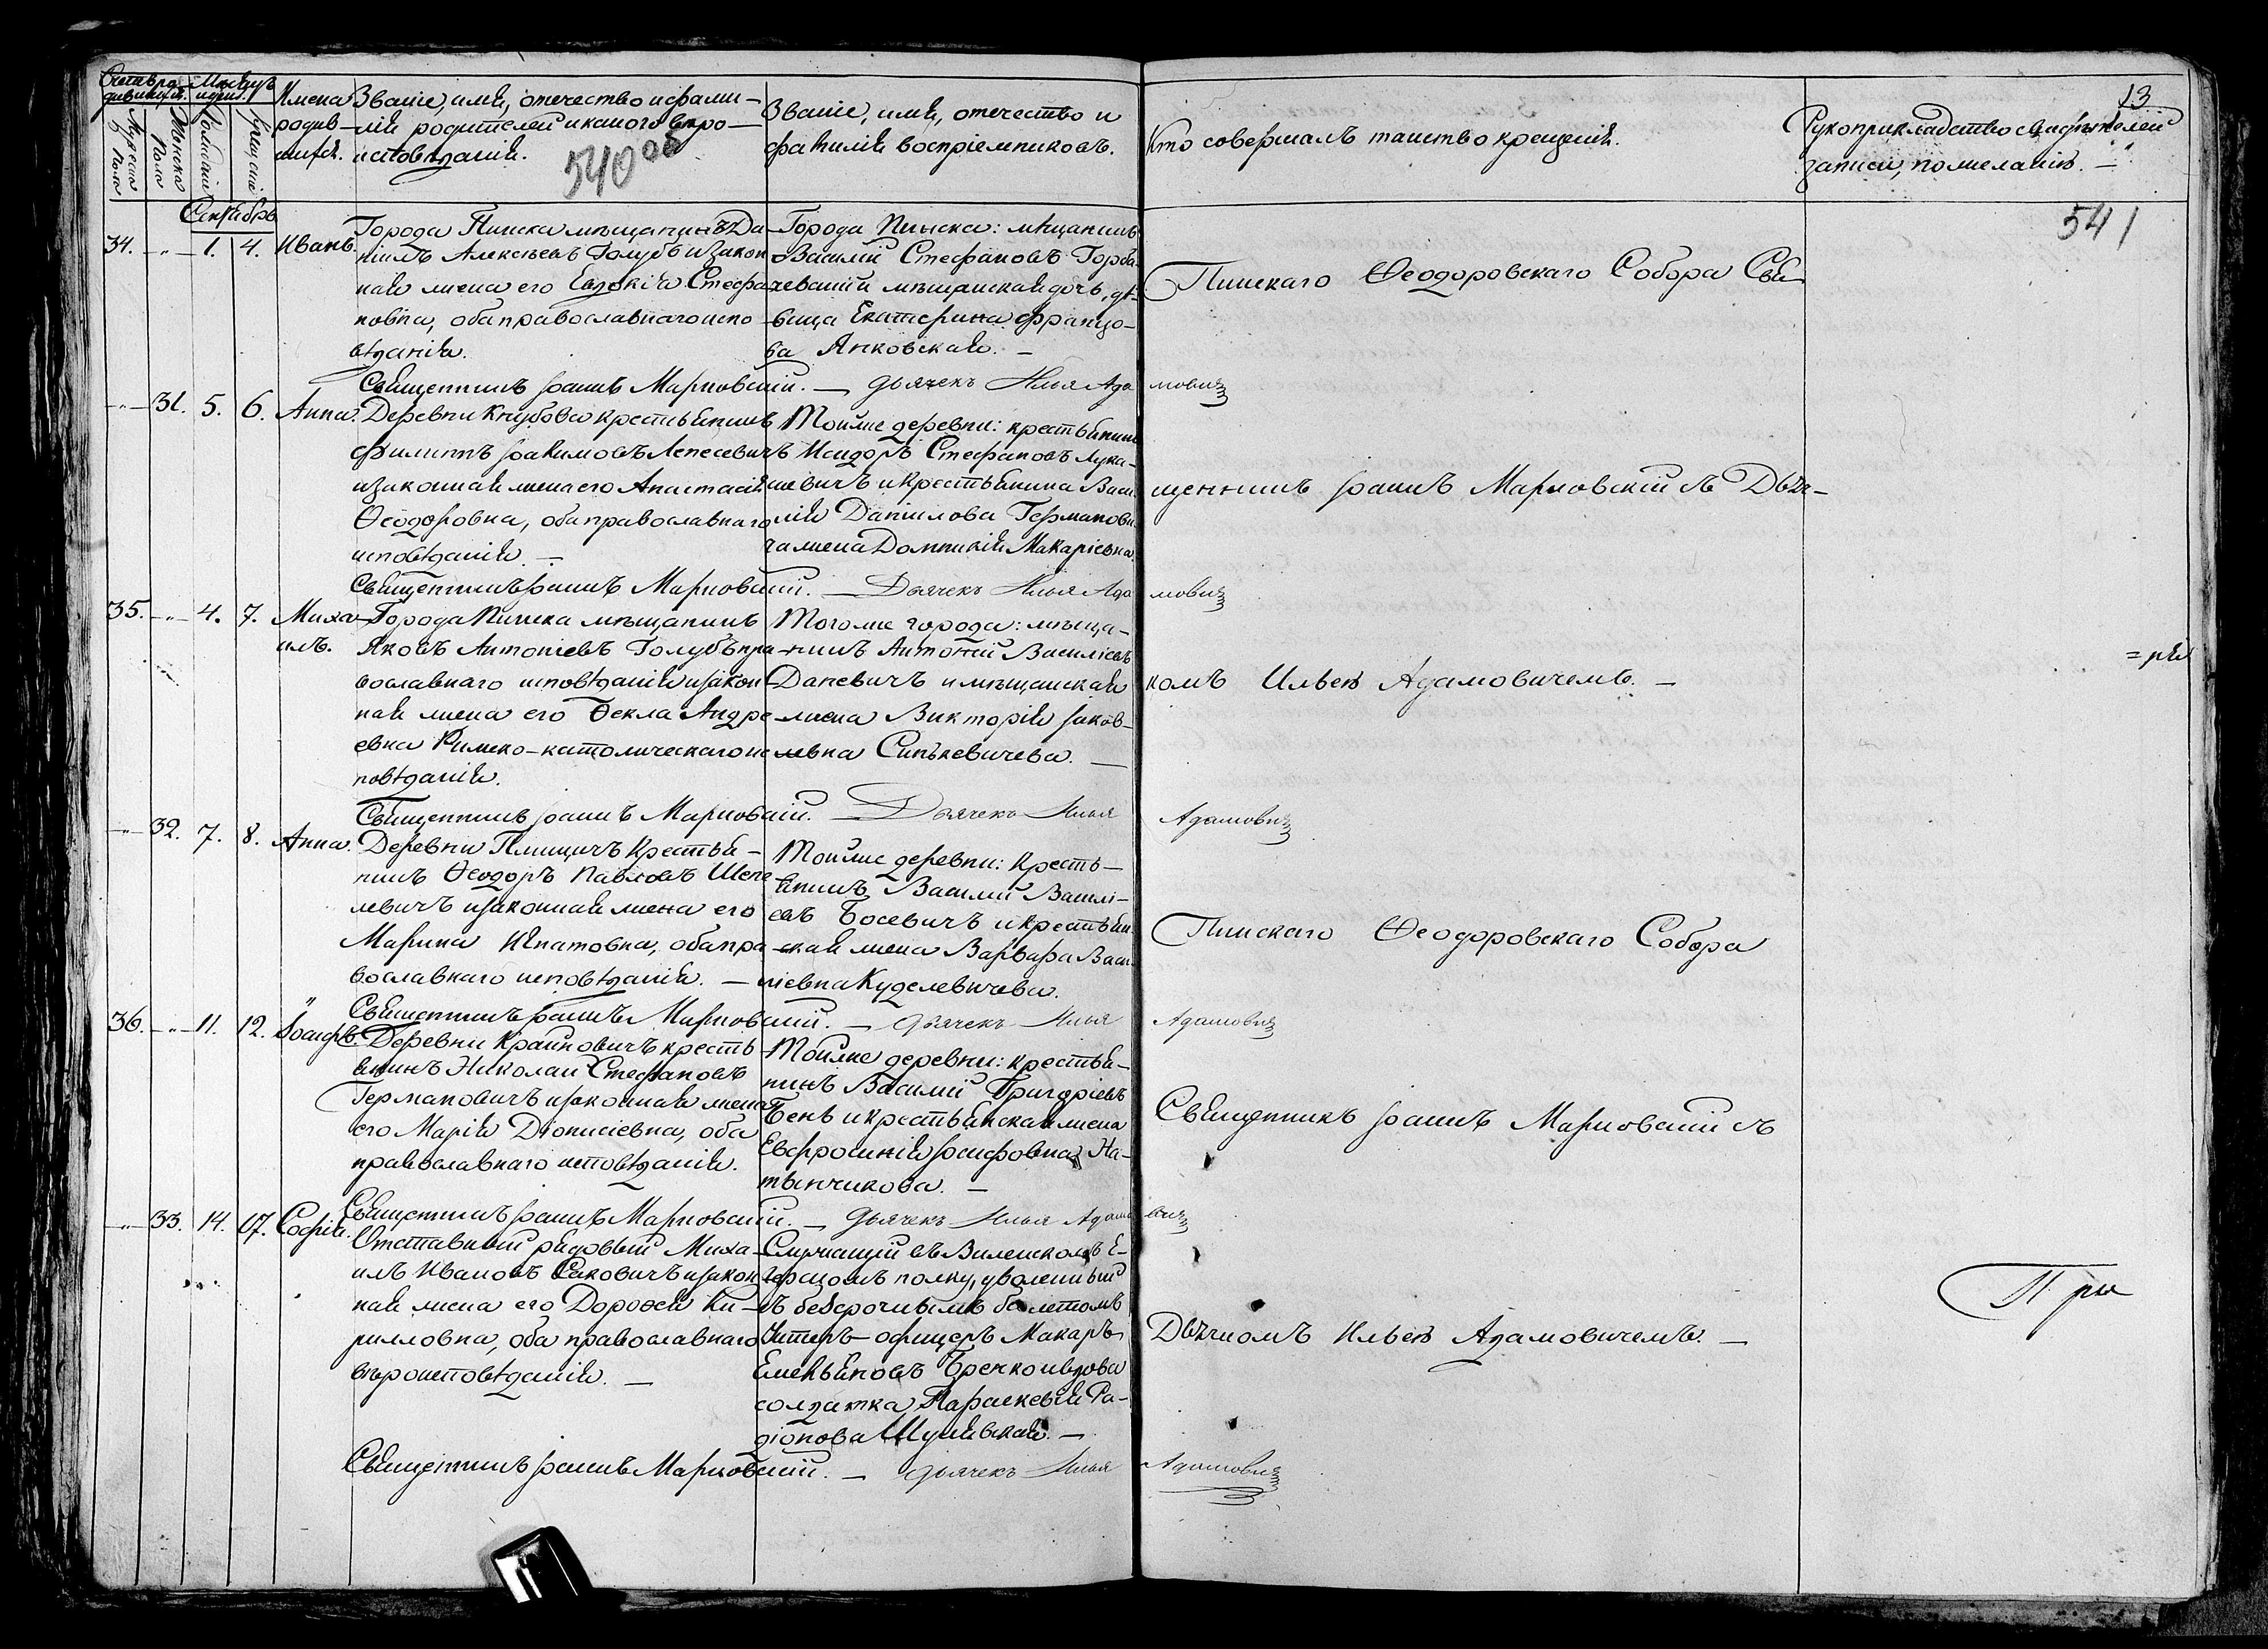 Счетъ ро-
дившихся.
Мѣсяцъ
и день.
Мужеска
пола
Женска
пола
Рожденія
Крещенія
Имена
родив-
шихся.
Званіе, имя, отечество и фами-
лія родителей и какого вѣро-
исповѣданія.
540 об
Званіе, имя, отечество и
фамилія воспріемниковъ.
Кто совершалъ таинство крещенія.
Рукоприкладство свидѣтелей
записи, по желанію. —
13
541
Сентябрь
34. -"- 1. 4. Иванъ.
Города Пинска мѣщанинъ Да-
ніилъ Алексѣевъ Голубъ и закон-
ная жена его Евдокія Стефа-
новна, оба православнаго испо-
вѣданія.
Города Пинска: мѣщанинъ
Василій Стефановъ Горба-
чевскій и мѣщанская дочь, дѣ-
вица Екатерина Францо-
ва Янковская. —
Священникъ Іоаннъ Марковскій. — Дьячекъ Илья Ада мовичъ
-"- 31. 5. 6. Анна.
Деревни Кнубова крестьянинъ
Филиппъ Іоакимовъ Лепесевичъ
и законная жена его Анастасія
Ѳеодоровна, оба православнаго
исповѣданія. —
Той же деревни: крестьянинъ
Исидоръ Стефановъ Лука-
шевичъ и крестьянина Васи-
лія Данилова Германови-
ча жена Домникія Макаріевна.
Священникъ Іоаннъ Марковскій. — Дьячекъ Илья Ада мовичъ
35. -"- 4. 7. Миха-
илъ.
Города Пинска мѣщанинъ
Яковъ Антоніевъ Голубъ пра-
вославнаго исповѣданія и закон-
ная жена его Ѳекла Андре-
евна Римско-католическаго ис-
повѣданія.
Того же города: мѣща-
нинъ Антоній Василіевъ
Даневичъ и мѣщанская
жена Викторія Іаков-
левна Синкевичева. —
Священникъ Іоаннъ Марковскій. — Дьячекъ Илья Адамовичъ
-"- 32. 7. 8. Анна.
Деревни Плищичъ крестья-
нинъ Ѳеодоръ Павловъ Шепе-
левичъ и законная жена его
Марина Игнатовна, оба пра-
вославнаго исповѣданія. —
Той же деревни: кресть-
янинъ Василій Васи́лі-
евъ Босевичъ и крестьян-
ская жена Варвара Васи-
ліевна Куделевичева.
Священникъ Іоаннъ Марковскій. — Дьячекъ Илья Адамовичъ
36. -"- 11. 12. Іосифъ.
Деревни Крайновичъ кресть-
янинъ Николай Стефановъ
Германовичъ и законная жена
его Марія Діонисіевна, оба
православнаго исповѣданія.
Той же деревни: крестья-
нинъ Василій Григоріевъ
Бень и крестьянская жена
Евфросинія Іосифовна На-
тынчикова. —
Священникъ Іоаннъ Марковскій. — Дьячекъ Илья Адамо вичъ
-"- 33. 14. 17. Софія.
Отставный рядовый Миха-
илъ Ивановъ Саковичъ и закон-
ная жена его Дороѳея Ки-
рилловна, оба православнаго
вѣроисповѣданія. —
Служащій въ Виленскомъ Е-
герскомъ полку, уволенный
въ безсрочнымъ билетомъ
Унтеръ-офицеръ Макаръ
Емельяновъ Бречко и вдова
солдатка Параскевія Ра-
діонова Шулявская. —
Священникъ Іоаннъ Марковскій. — Дьячекъ Илья Адамовичъ
Пинскаго Ѳеодоровскаго Собора Свя-
щенникъ Іоаннъ Марковскій съ Дьяч-
комъ Ильею Адамовичемъ. —
Пинскаго Ѳеодоровскаго Собора
Священникъ Іоаннъ Марковскій съ
Дьячкомъ Ильею Адамовичемъ. —
При